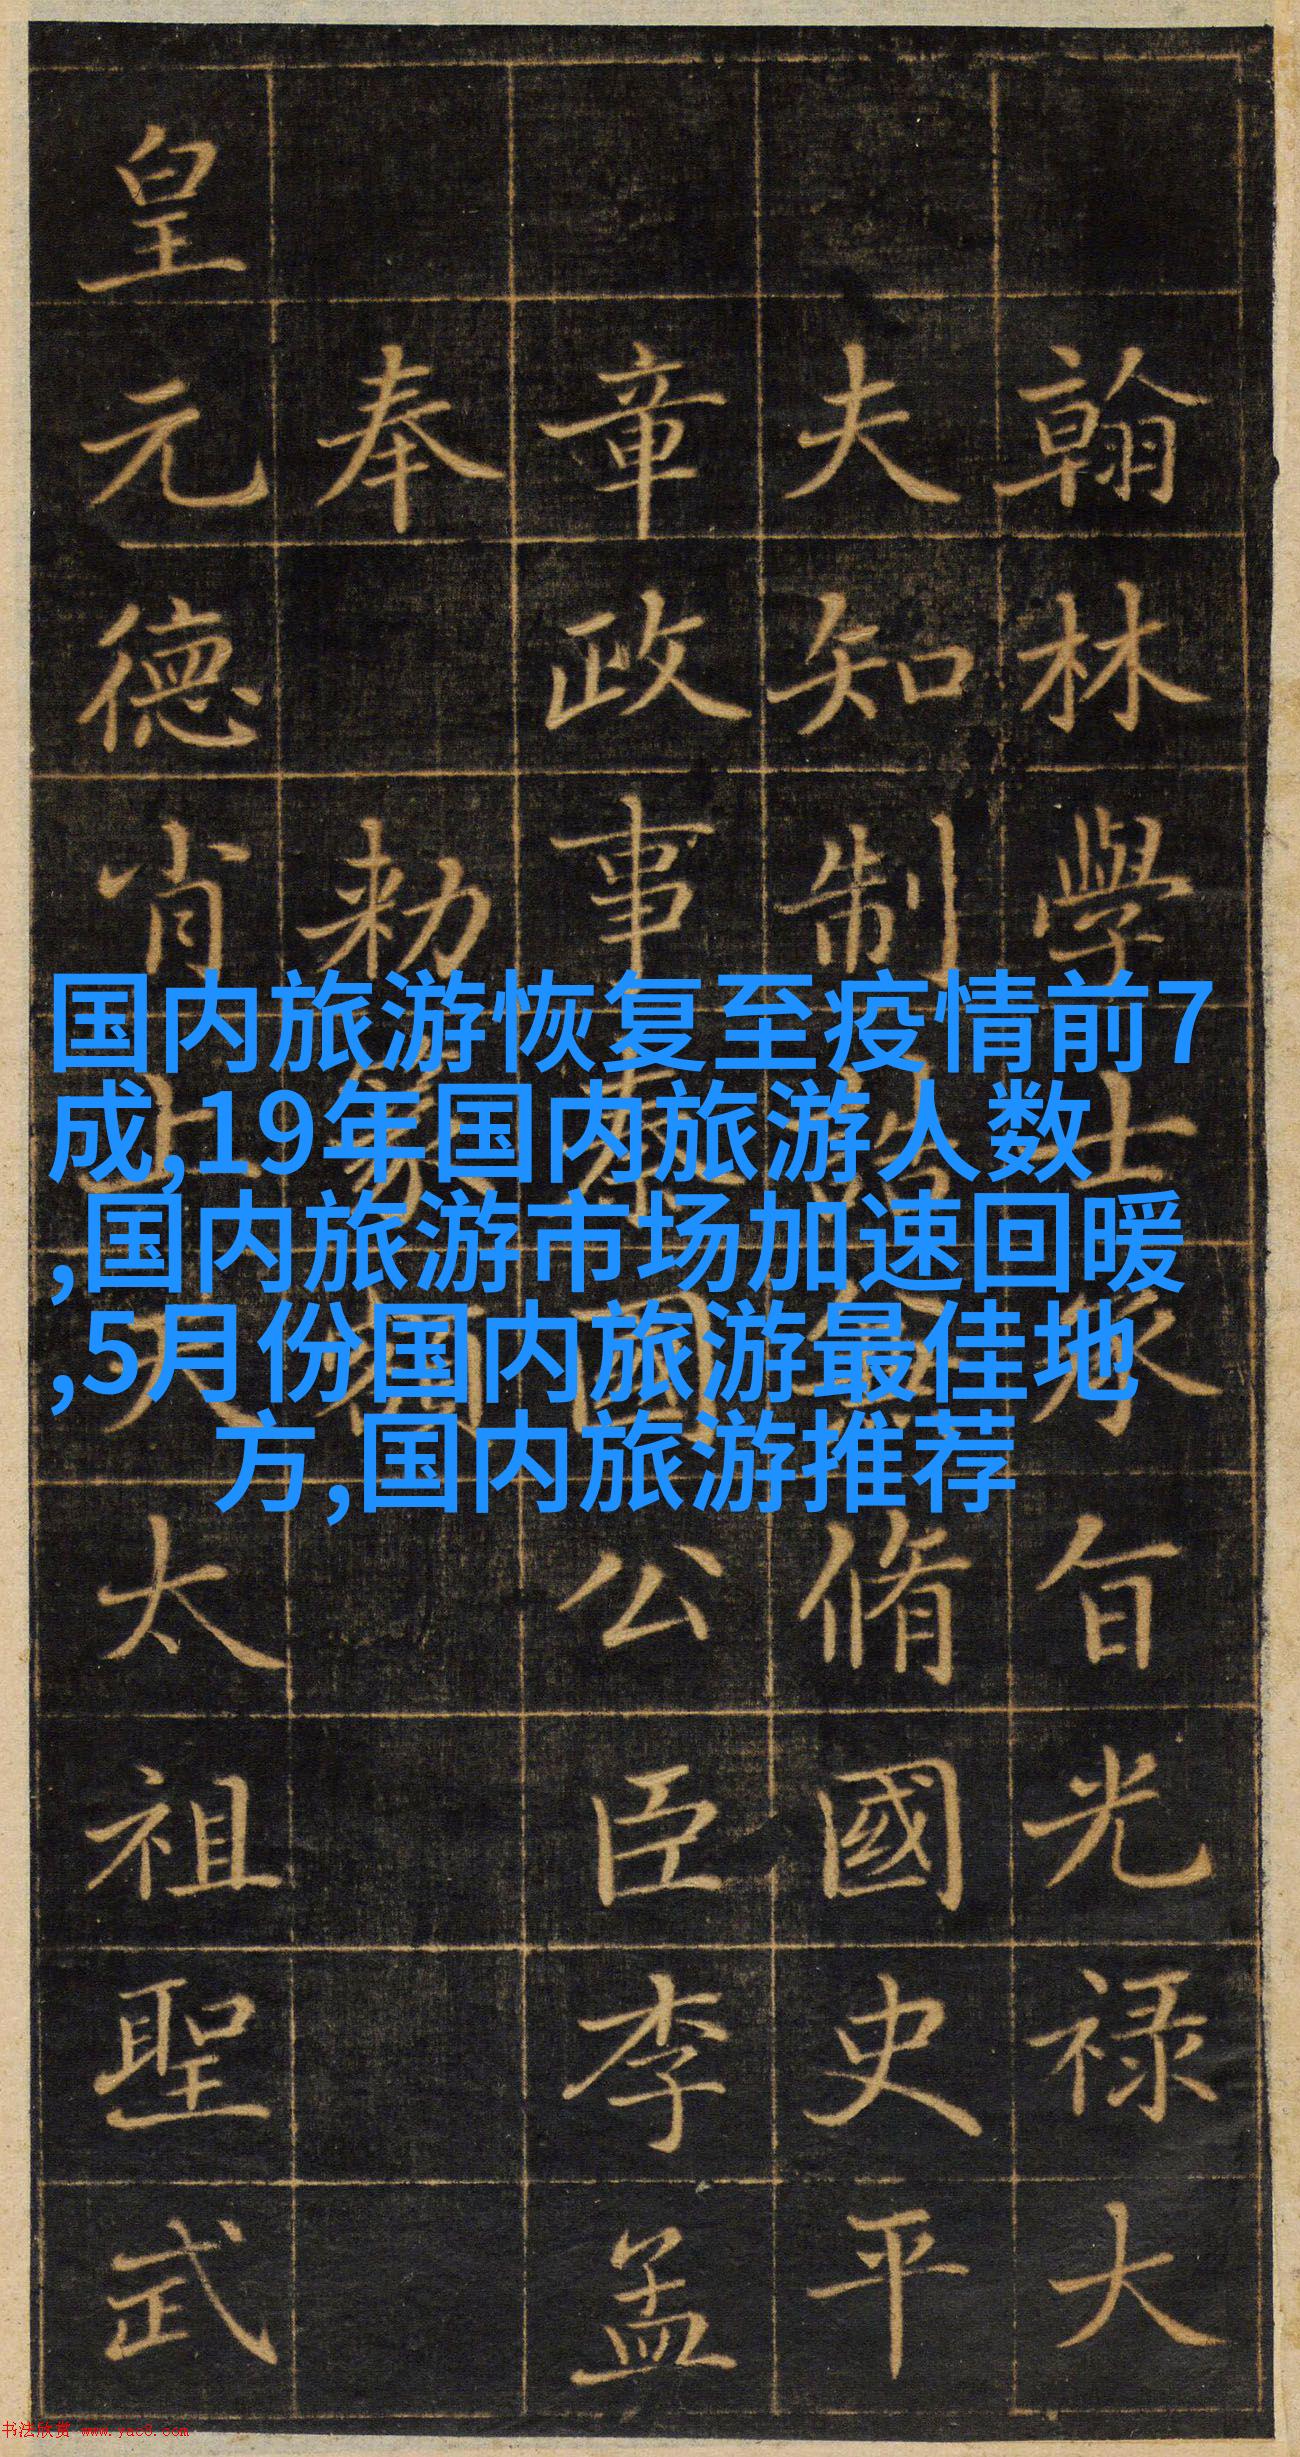 国内旅游恢复至疫情前7
成,19年国内旅游人数
,国内旅游市场加速回暖
,5月份国内旅游最佳地
方,国内旅游推荐
翰林學士承旨光禄大
夫知制誥脩國史平
章政事秦國公臣李孟
奉勑
皇元德肖上天太祖聖武
书法欣赏 www.yac8.com